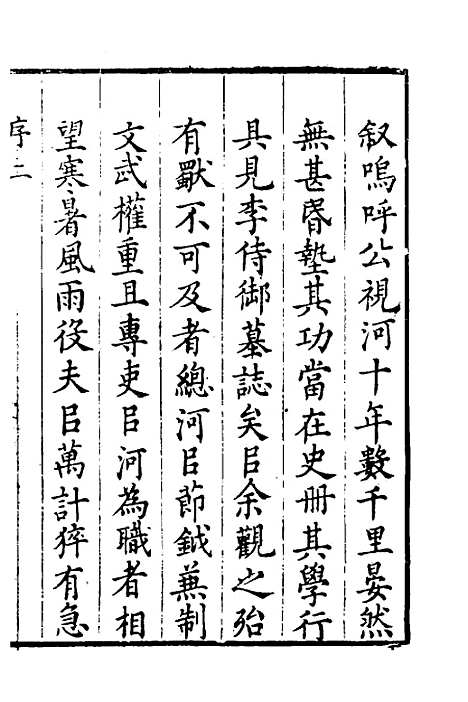 叙嗚呼公視河十年數千里晏然
無甚昬墊其功當在史册其學行
具見李侍御墓誌矣㠯余觀之殆
有獸不可及者總河㠯節鉞兼制
文武權重且專吏㠯河為職者相
望寒暑風雨役夫㠯萬計猝有急
序 二